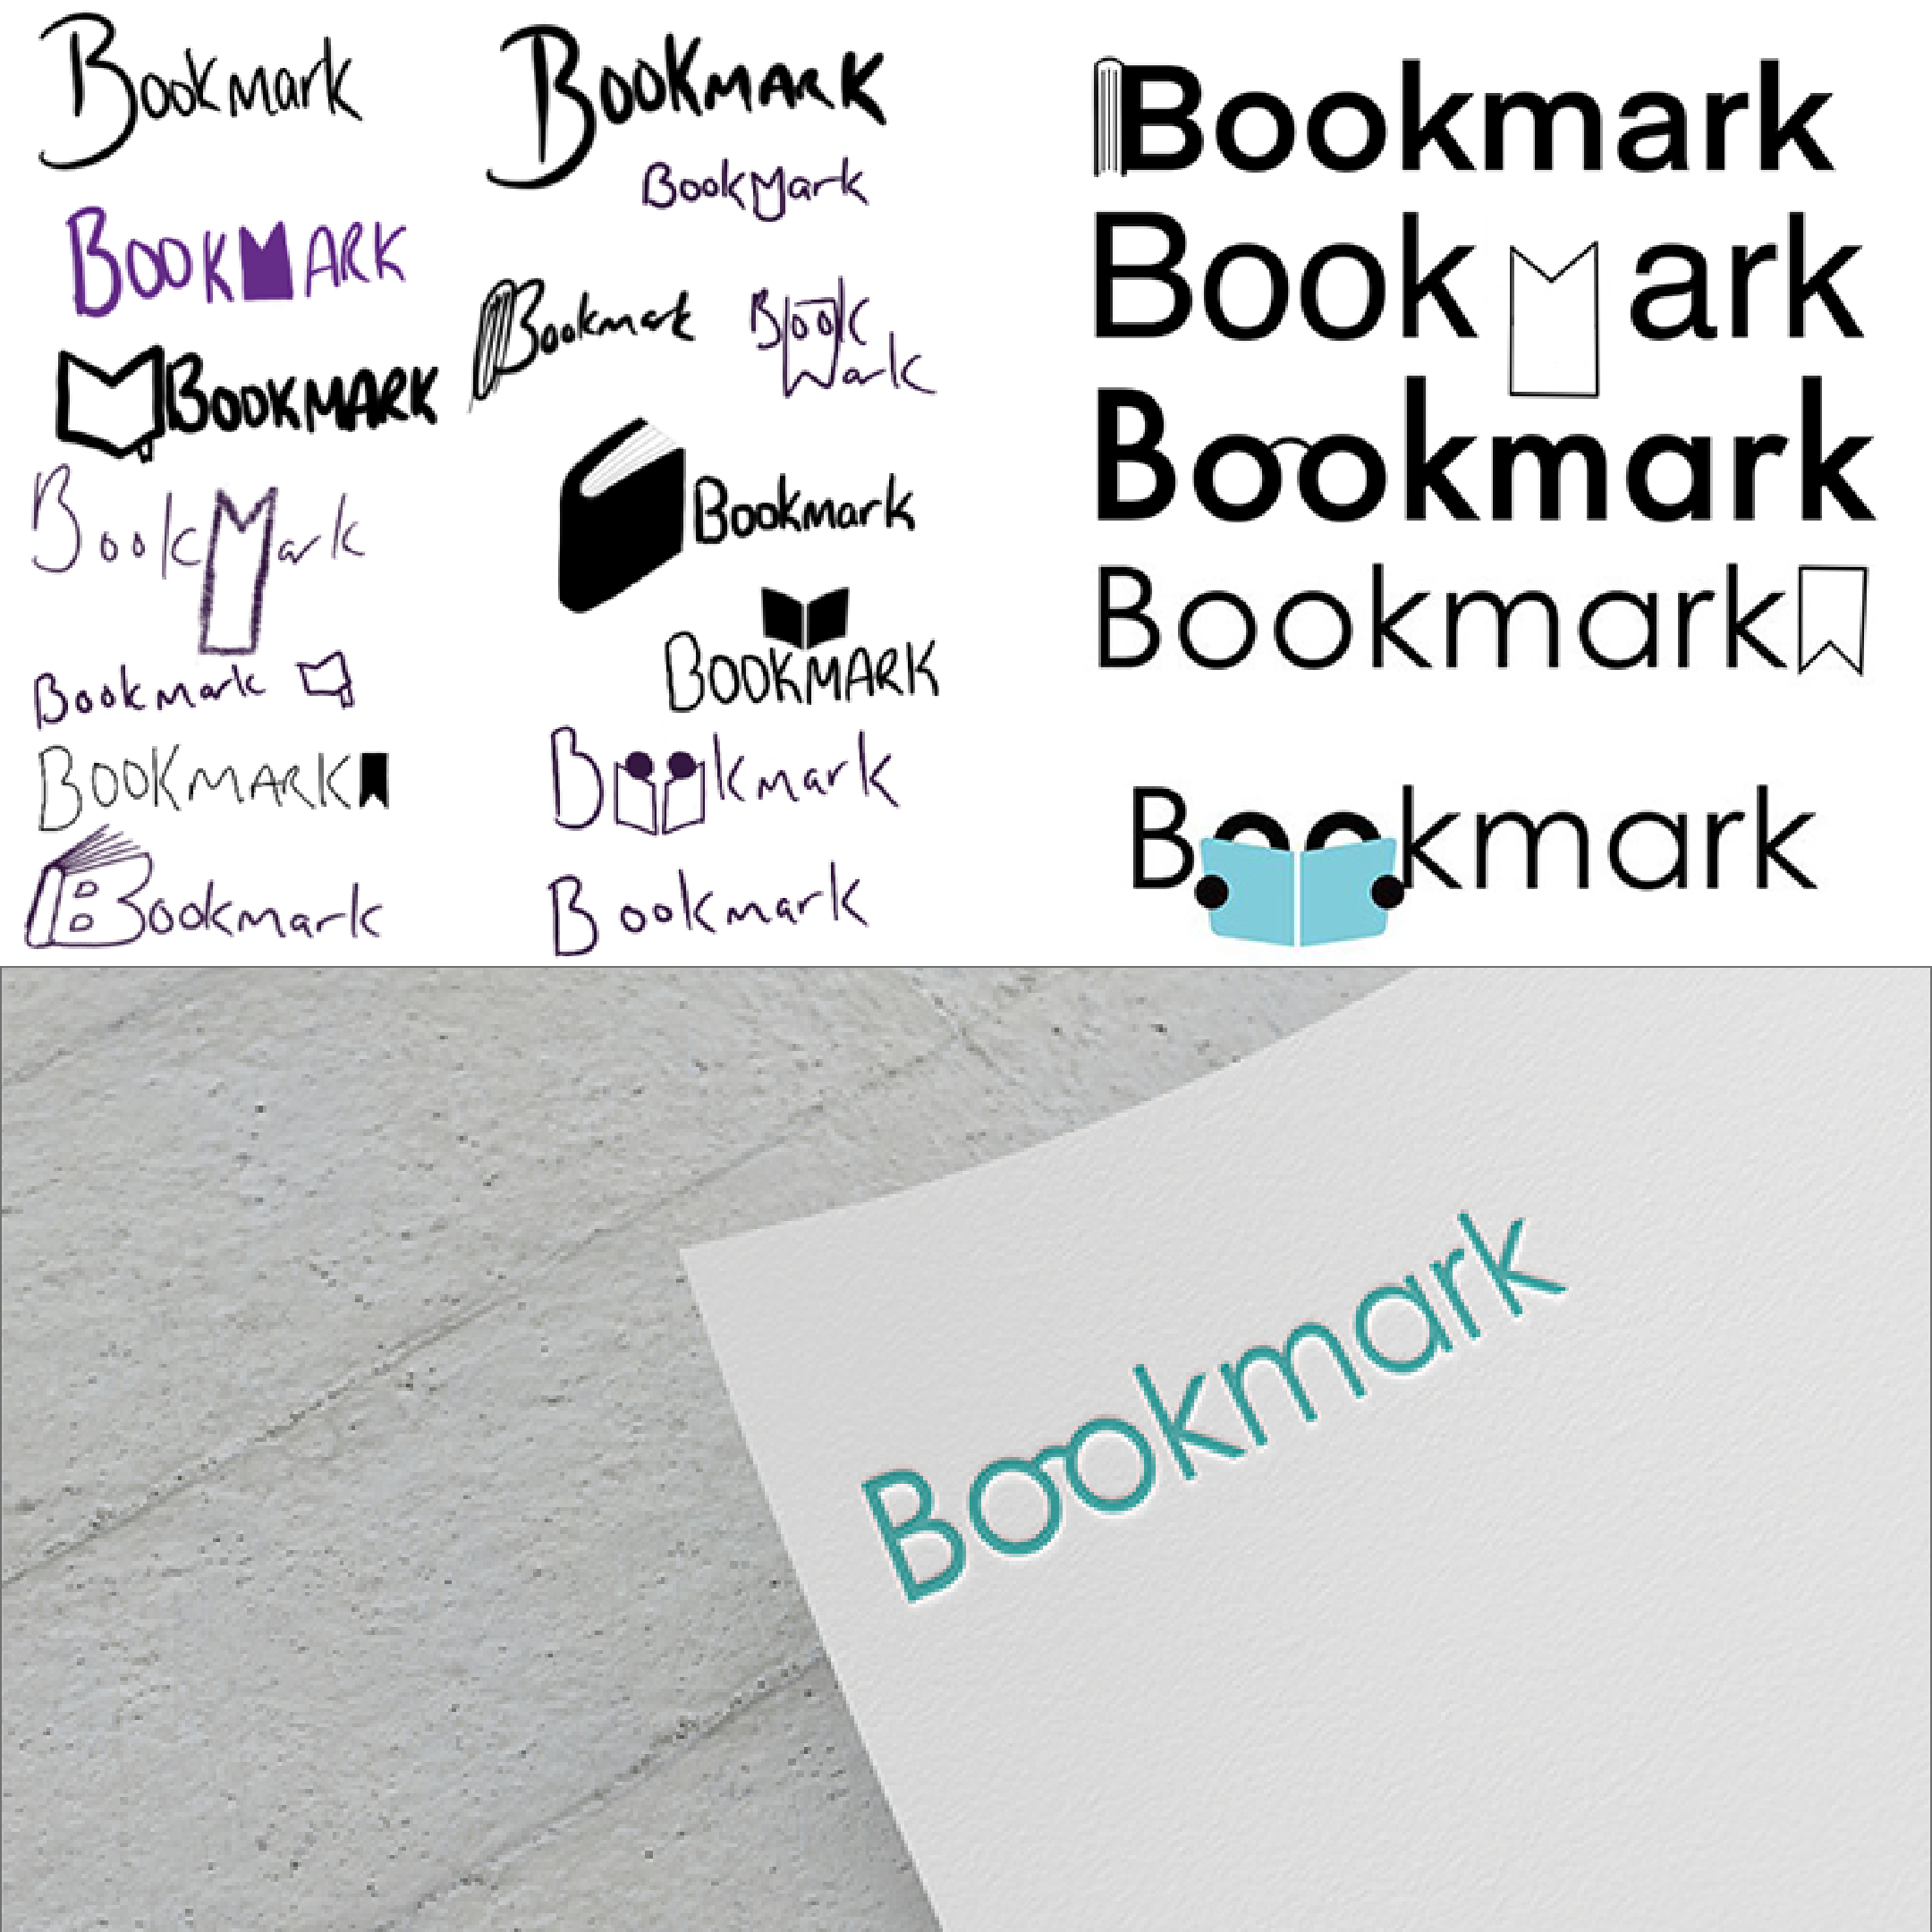 Bookmark
BOOKMARK
BOOKMARK
BookMark
Bookmark
BOOKMARK
Bookmark
BOOKMARK
BookMark
Bookmark
Book
Mark
Bookmark
BOOKMARK
Bookmark
Bookmark
Bookmark
BookMark
Bookmark
Bookmark
Bookmark
Bookmark